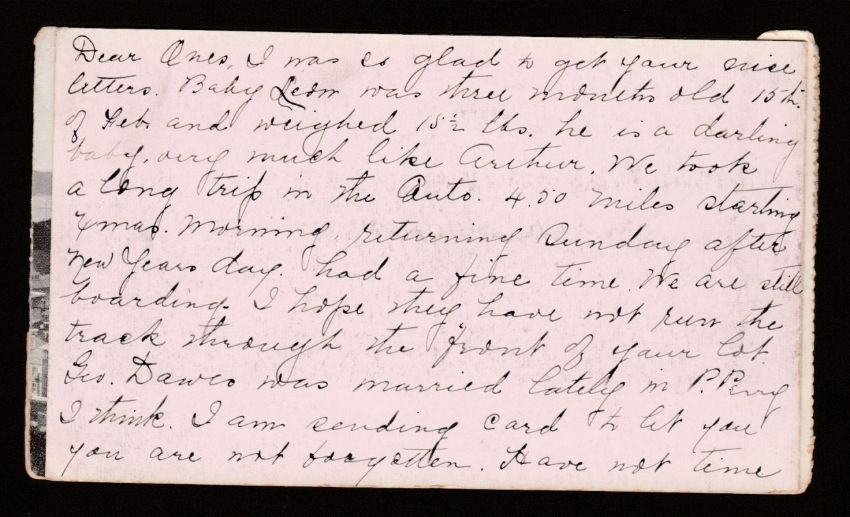 Dear Ones, I was so glad to get your nice
letters. Baby Leon was three months old 15th.
of Feb. and weighed 15½ lbs. he is a darling
baby, very much like Arthur. We took
a long trip in the Auto. 450 miles starting
Xmas. morning, returning Sunday after
New Years day. had a fine time. We are still
boarding. I hope they have not run the
track through the front of your lot.
Geo. Dawes was married lately in P. Perry
I think. I am sending card to let you
you are not forgotten. Have not time